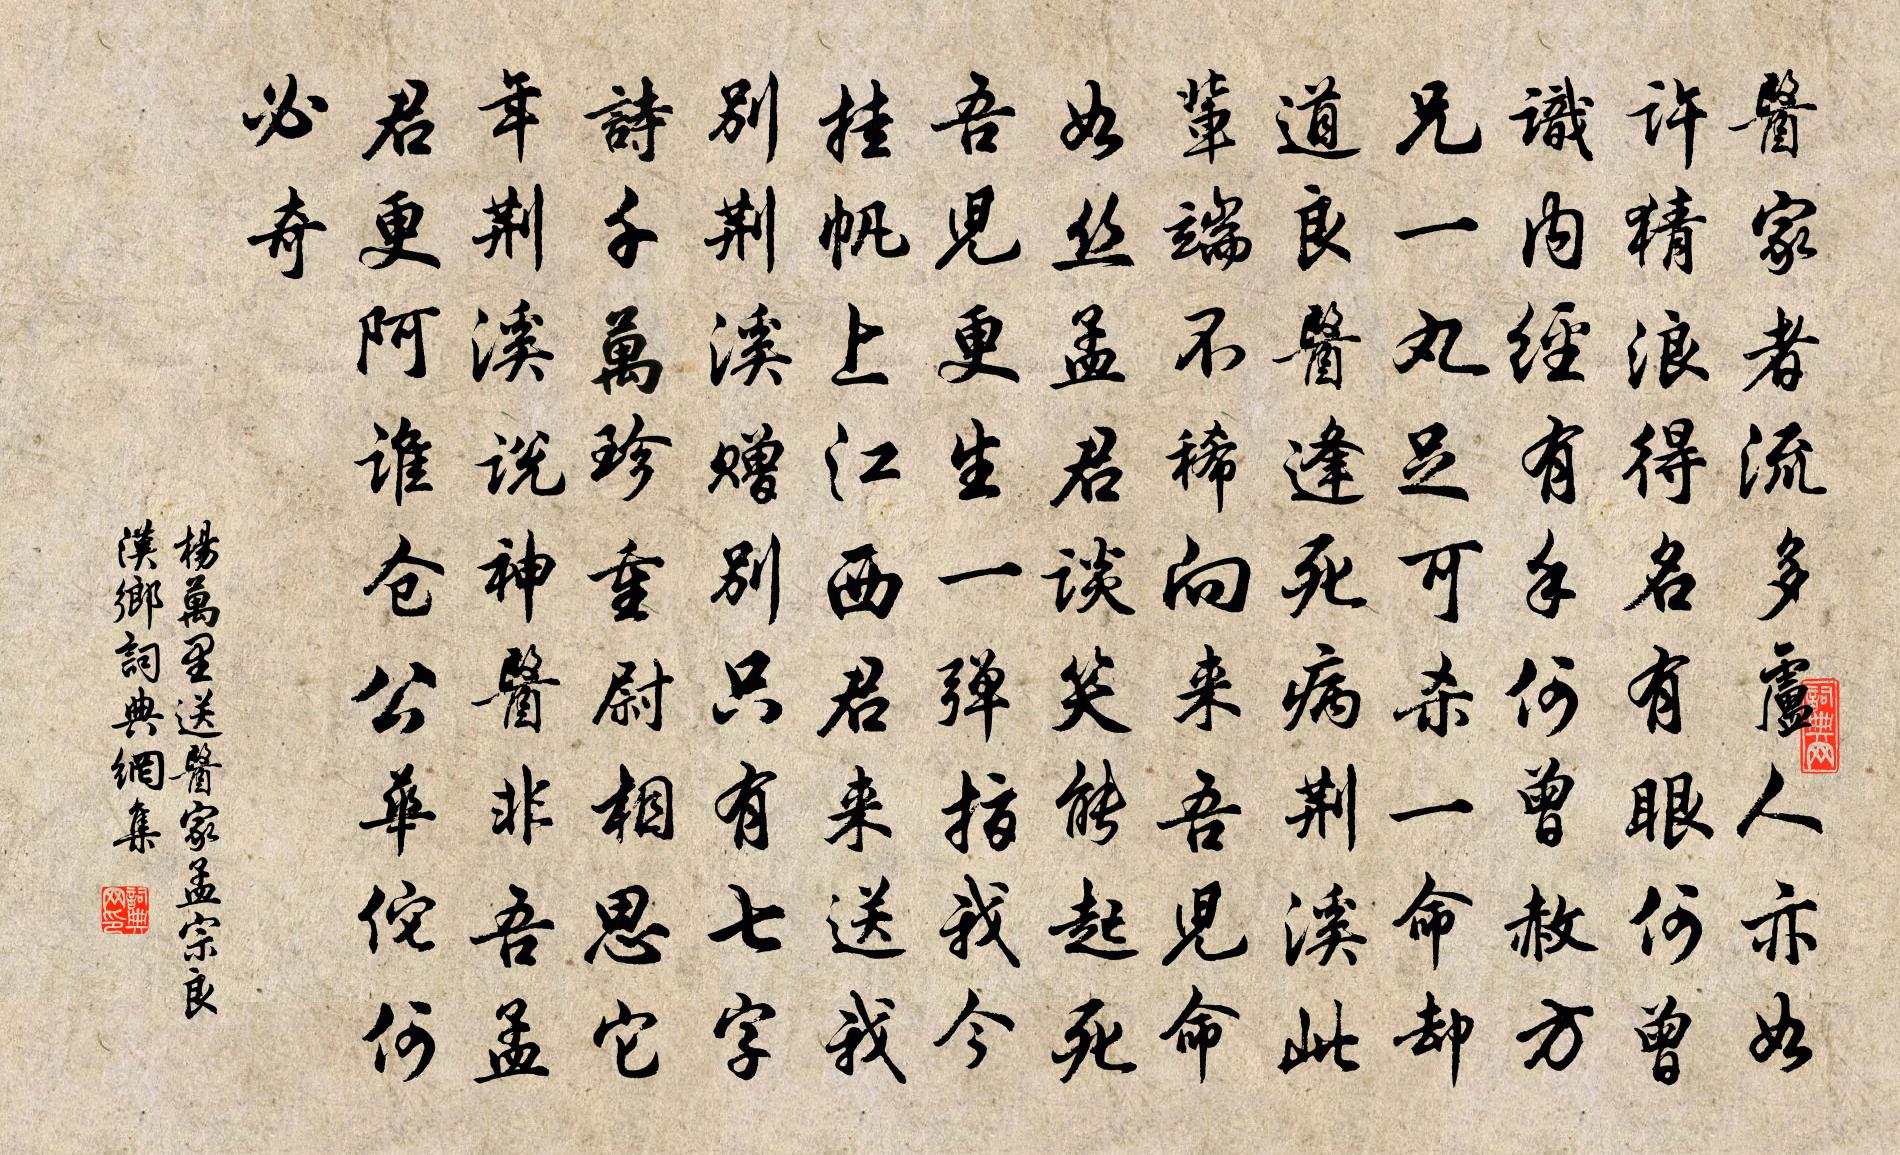 醫家者流多盧人亦如
許精浪得名有眼何曾
識内經有手何曾赦方
兄一丸足可杀一命却
道良醫逢死病荆溪此
輩端不稀向来吾兒命
如丝孟君談笑能起死
吾兒更生一弹指我今
挂帆上江西君来送我
别荆溪赠别只有七字
詩千萬珍重尉相思它
年荆溪说神醫非吾孟
君更阿谁仓公華佗何
必奇
楊萬里送醫家孟宗良
漢鄉詞典網集
詞典网
詞典网印